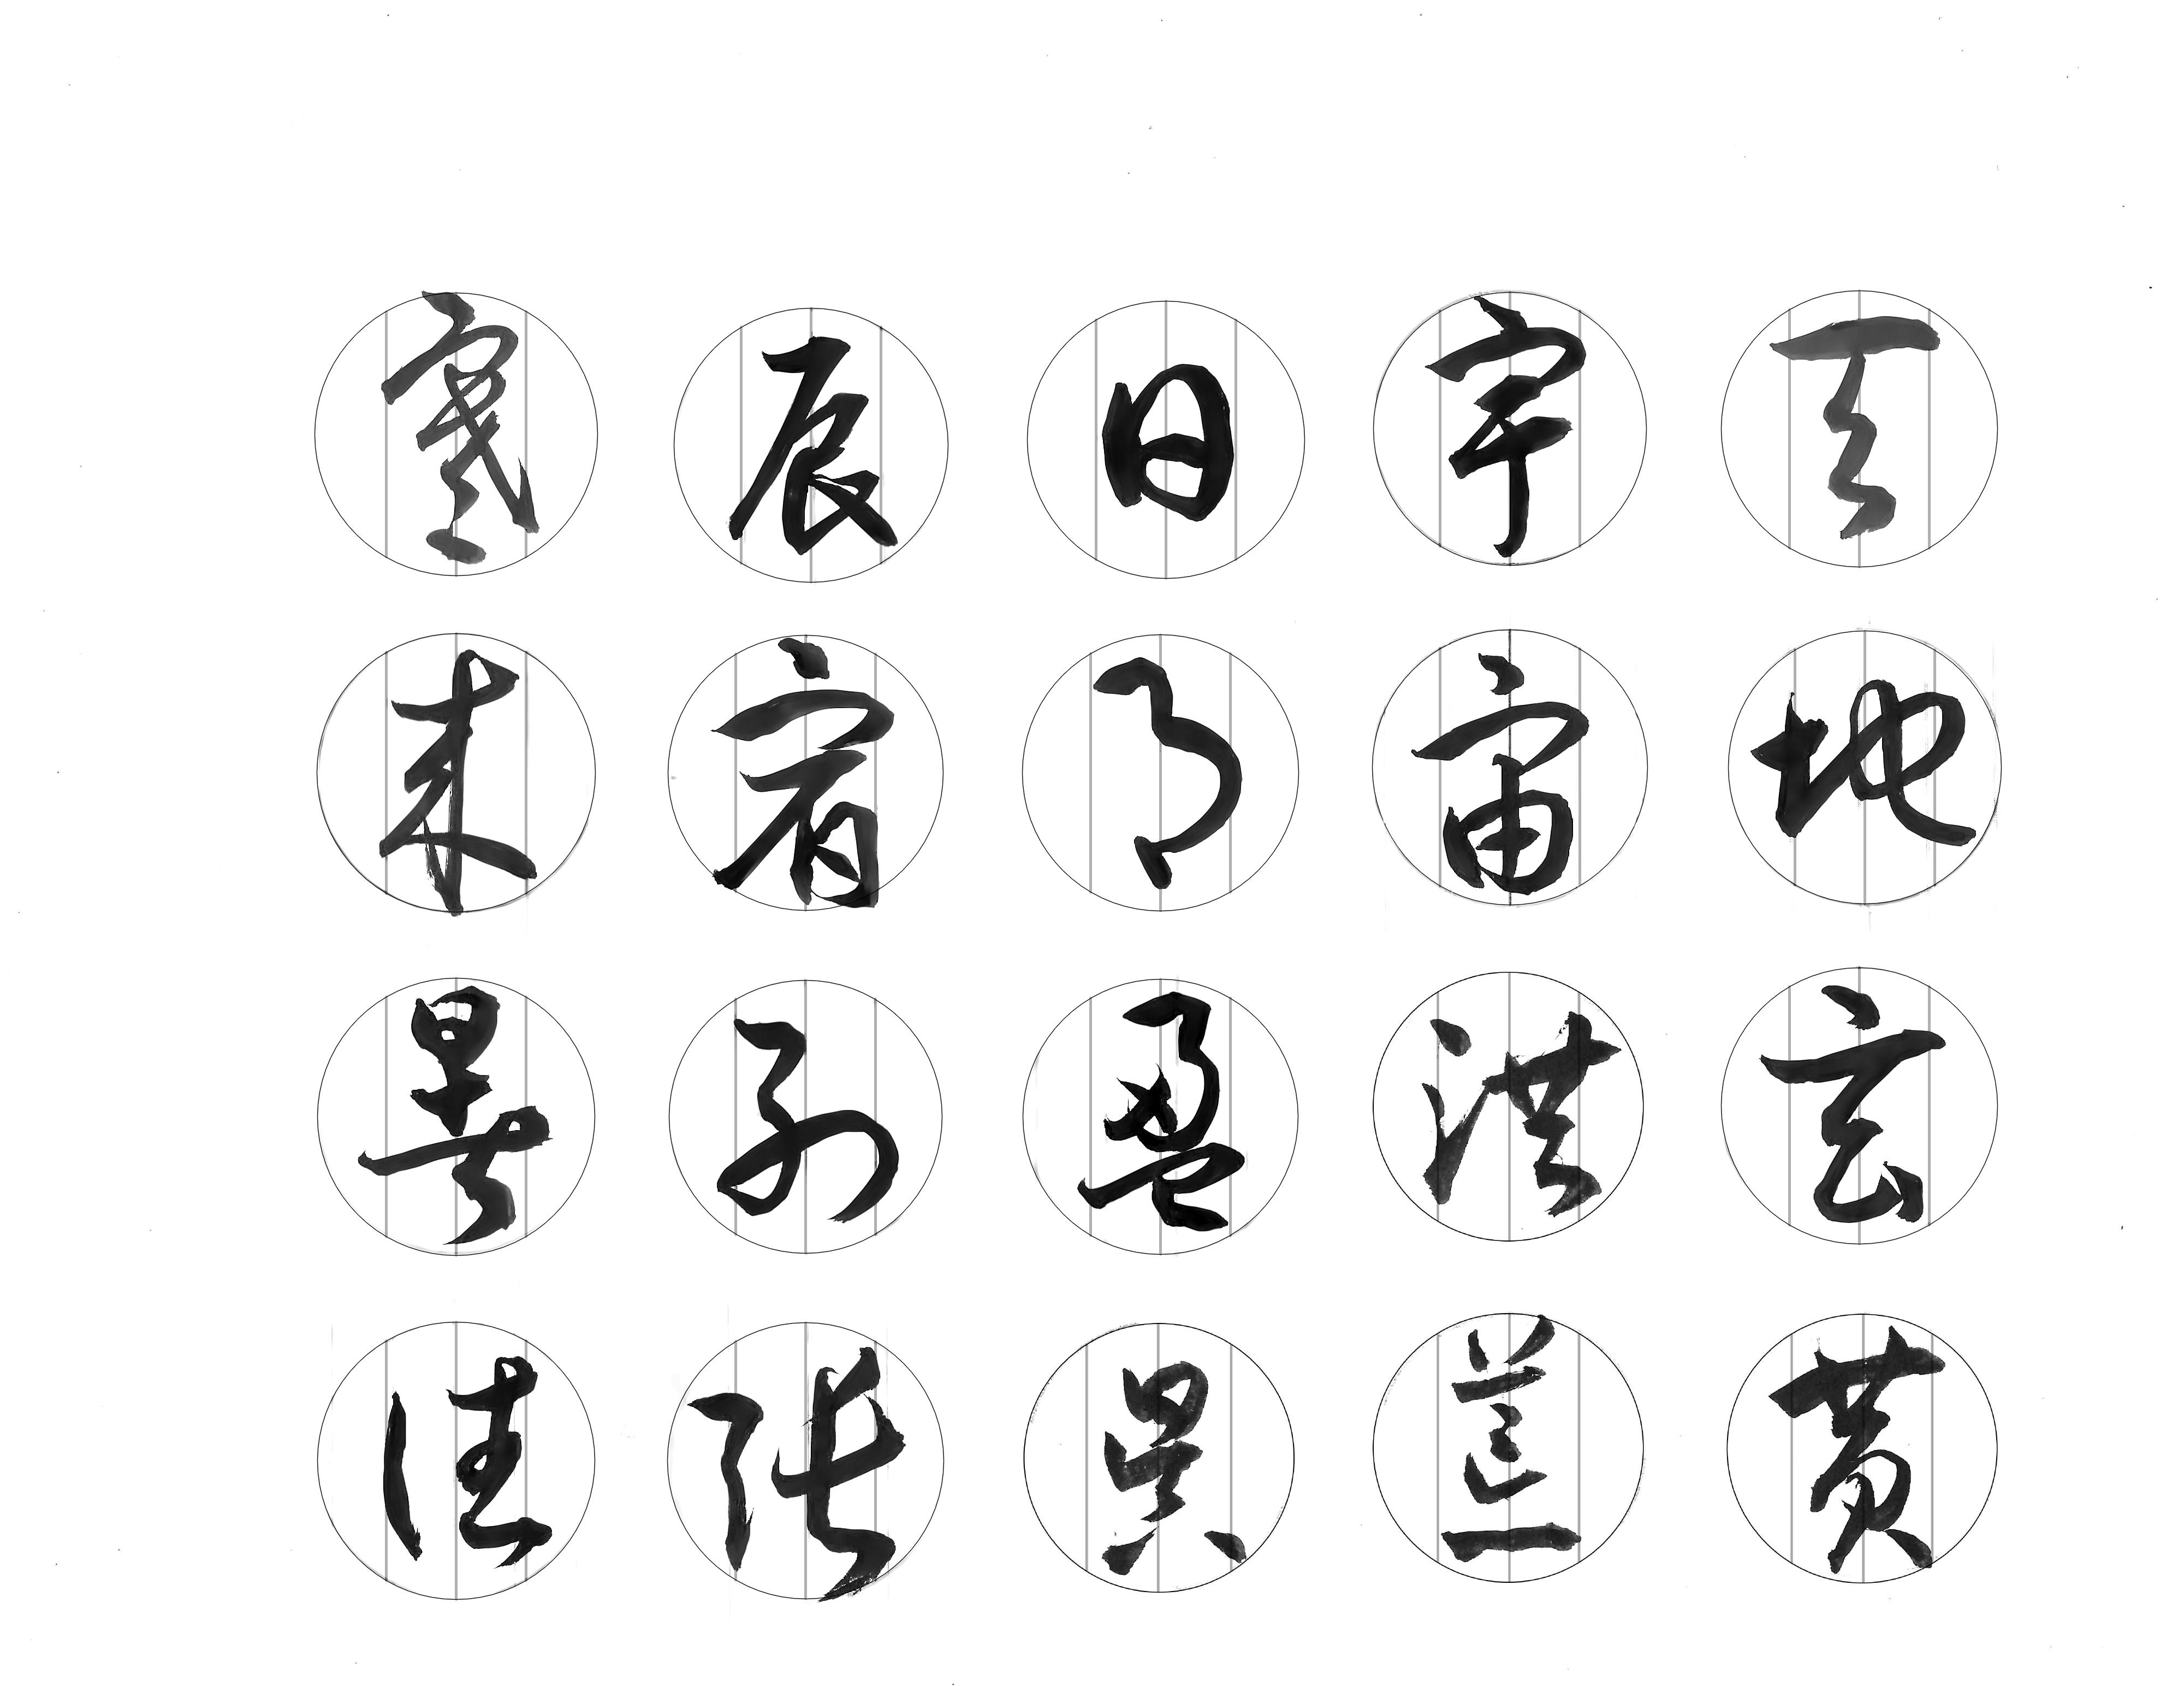 天地玄黄
宇宙洪荒
日月盈昃
辰宿列張
寒来暑往